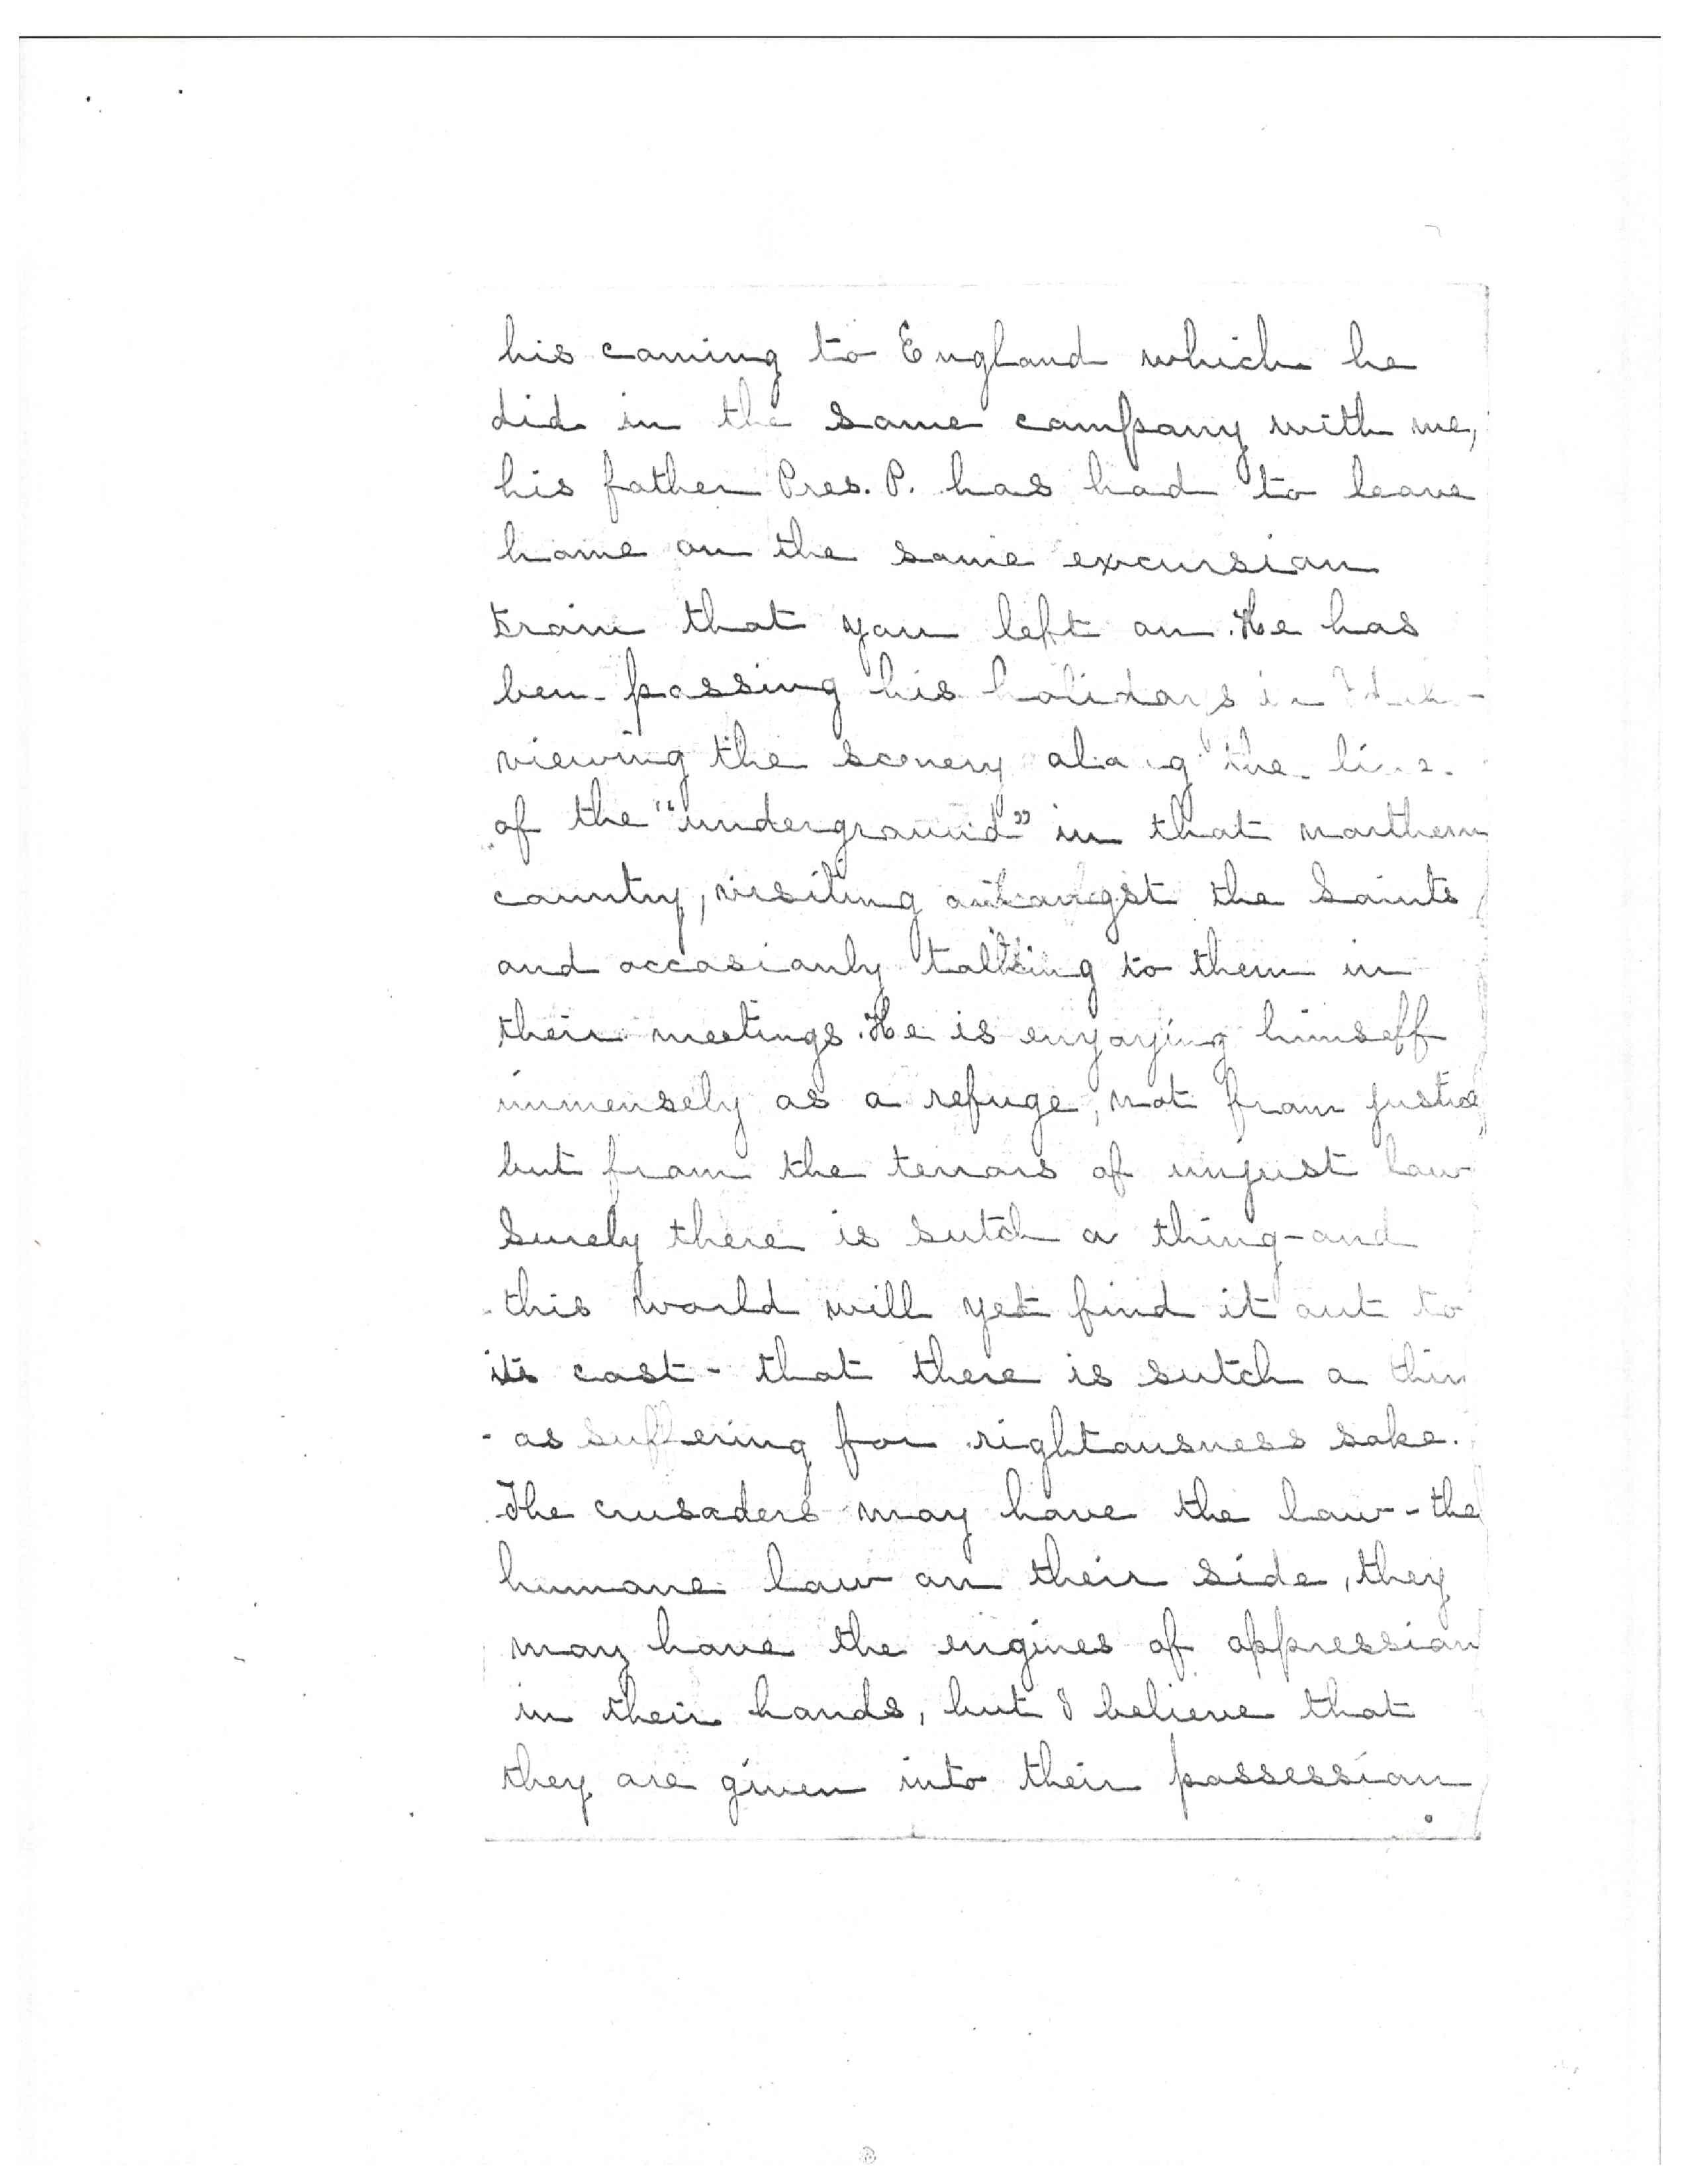 his coming to England which he
did in the same company with me,
his father Pres. P. has had to leave
home on the same excursion
train that you left on. He has
ben passing his holidays in
viewing the scenery along the line
of the "underground" in that northern
country, visiting amongst the Saints
and occasionly talking to them in
their meetings. He is enyoying himself
immensely as a refuge, not from justice
but from the terrors of unjust law
Surely there is sutch a thing - and
this world will yet find it out to
its cost - that there is sutch a thin
- as suffering for rightousness sake.
The crusaders may have the law - the
humane law on their side, they
may have the engines of oppression
in their hands, but I believe that
they are given into their possession